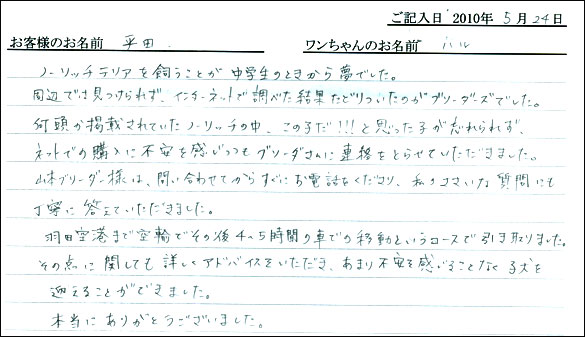 ご記入日 2010年 5月 24日
お客様のお名前 平田 ワンちゃんのお名前 ハル
ノーリッチテリアを飼うことが中学生のときから夢でした。
周辺では見つけられず、インターネットで調べた結果たどりついたのがブリーダーズでした。
何頭か掲載されていたノーリッチの中、この子だ!!!と思った子が忘れられず、
ネットでの購入に不安を感じつつもブリーダさんに連絡をとらせていただきました。
山本ブリーダー様は、問い合わせてからすぐにお電話をくださり、私のささいな質問にも
丁寧に答えていただきました。
羽田空港まで空輸でその後4~5時間の車での移動というコースで引き取りました。
その点に関しても詳しくアドバイスをいただき、あまり不安を感じることなく子犬を
迎えることができました。
本当にありがとうございました。